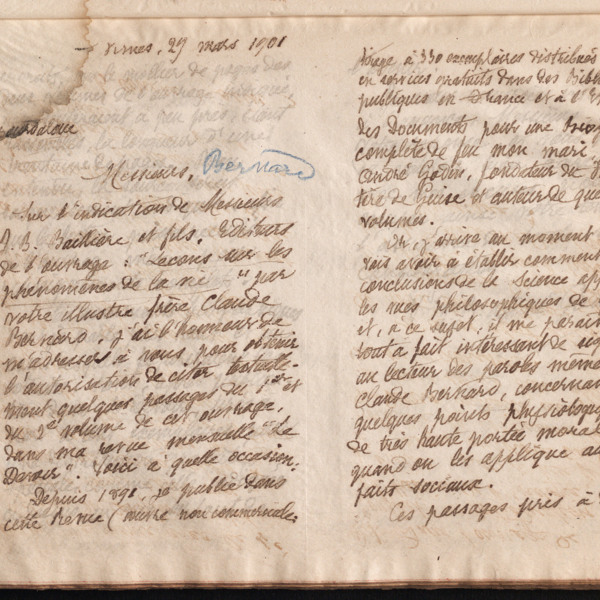 Nimes, 29 mars 1901
Messieurs, Bernard
Sur l'indication de Messieurs
J. B. Baillière et fils, Editeurs
de l'ouvrage : "Leçons sur les
phénomènes de la vie" par
votre illustre frère Claude
Bernard, j'ai l'honneur de
m'adresser à vous, pour obtenir
l'autorisation de citer textuelle-
ment quelques passages du 1er et
du 2e volume de cet ouvrage,
dans ma revue mensuelle "Le
Devoir". Voici à quelle occasion.
Depuis 1891, je publie dans
cette Revue (œuvre non commerciale,
tirage à 330 exemplaires distribués
en services gratuits dans des Bib
publiques en France et à l'E
des Documents pour une
complète de feu mon mari
André Godin, fondateur du
de Guise et auteur de que
volumes.
Or, j'arrive au moment
vais avoir à établir comment
conclusions de la Science app
les vues philosophiques de
et, à ce sujet, il me parait
tout à fait intéressant de
au lecteur des paroles même
Claude Bernard, concernan
quelques points physiologiqu
de très haute portée moral
quand on les applique au
faits sociaux.
Ces passages pris à